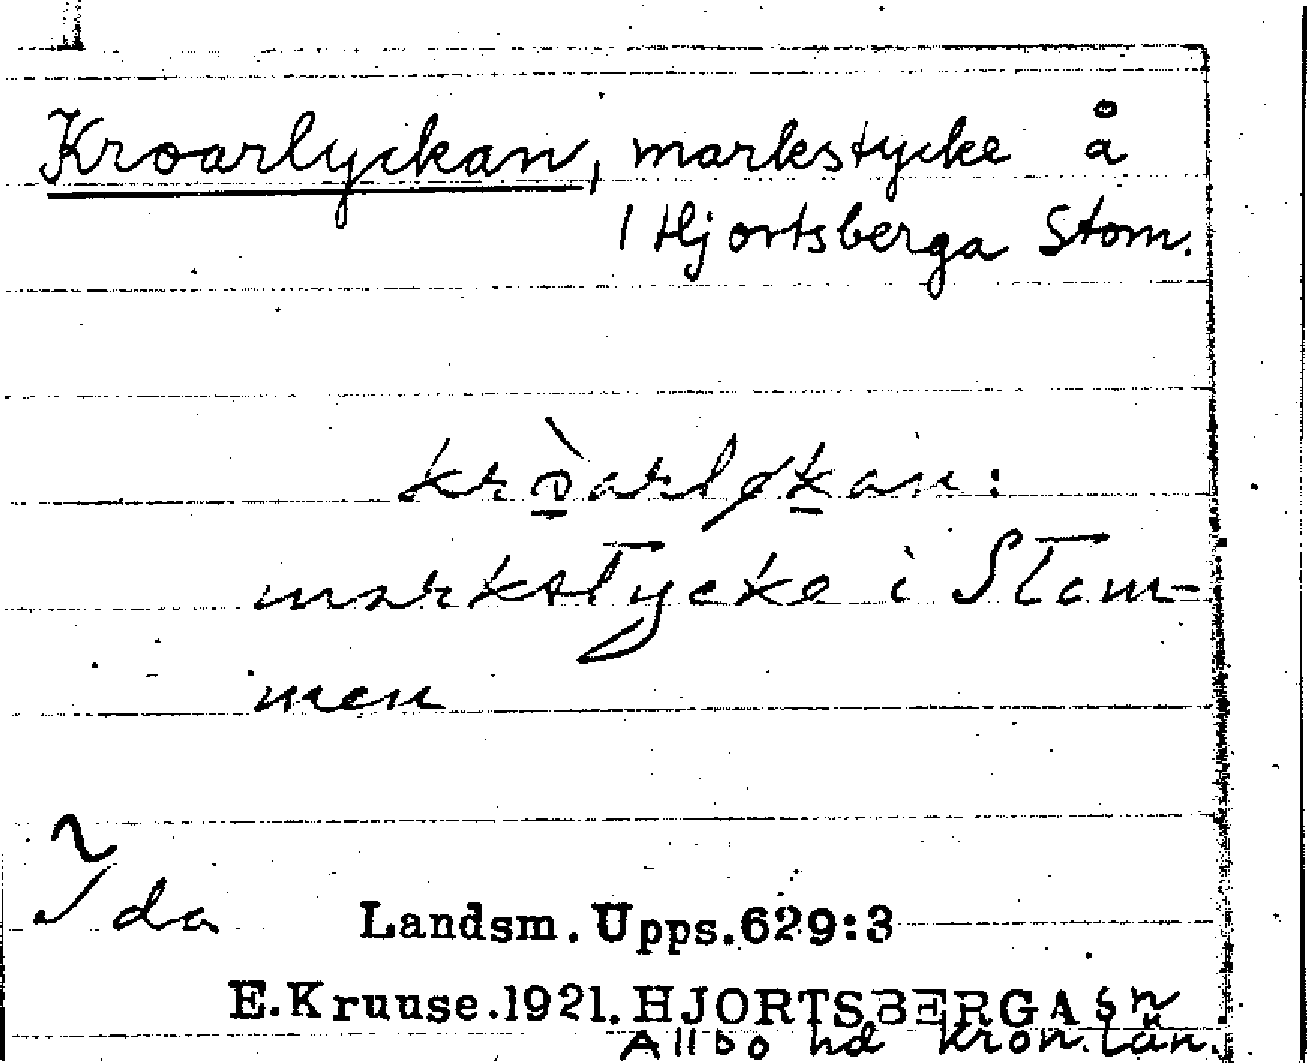 Kroarlyckan, markstycke å
1 Hjortsberga Stom.
krò̱arløḵan:
markstycke i Stom-
men
Ida
Landsm. Upps. 629:3
E. Kruuse. 1921. HJORTSBERGA sn
Allbo hd Kron. län.